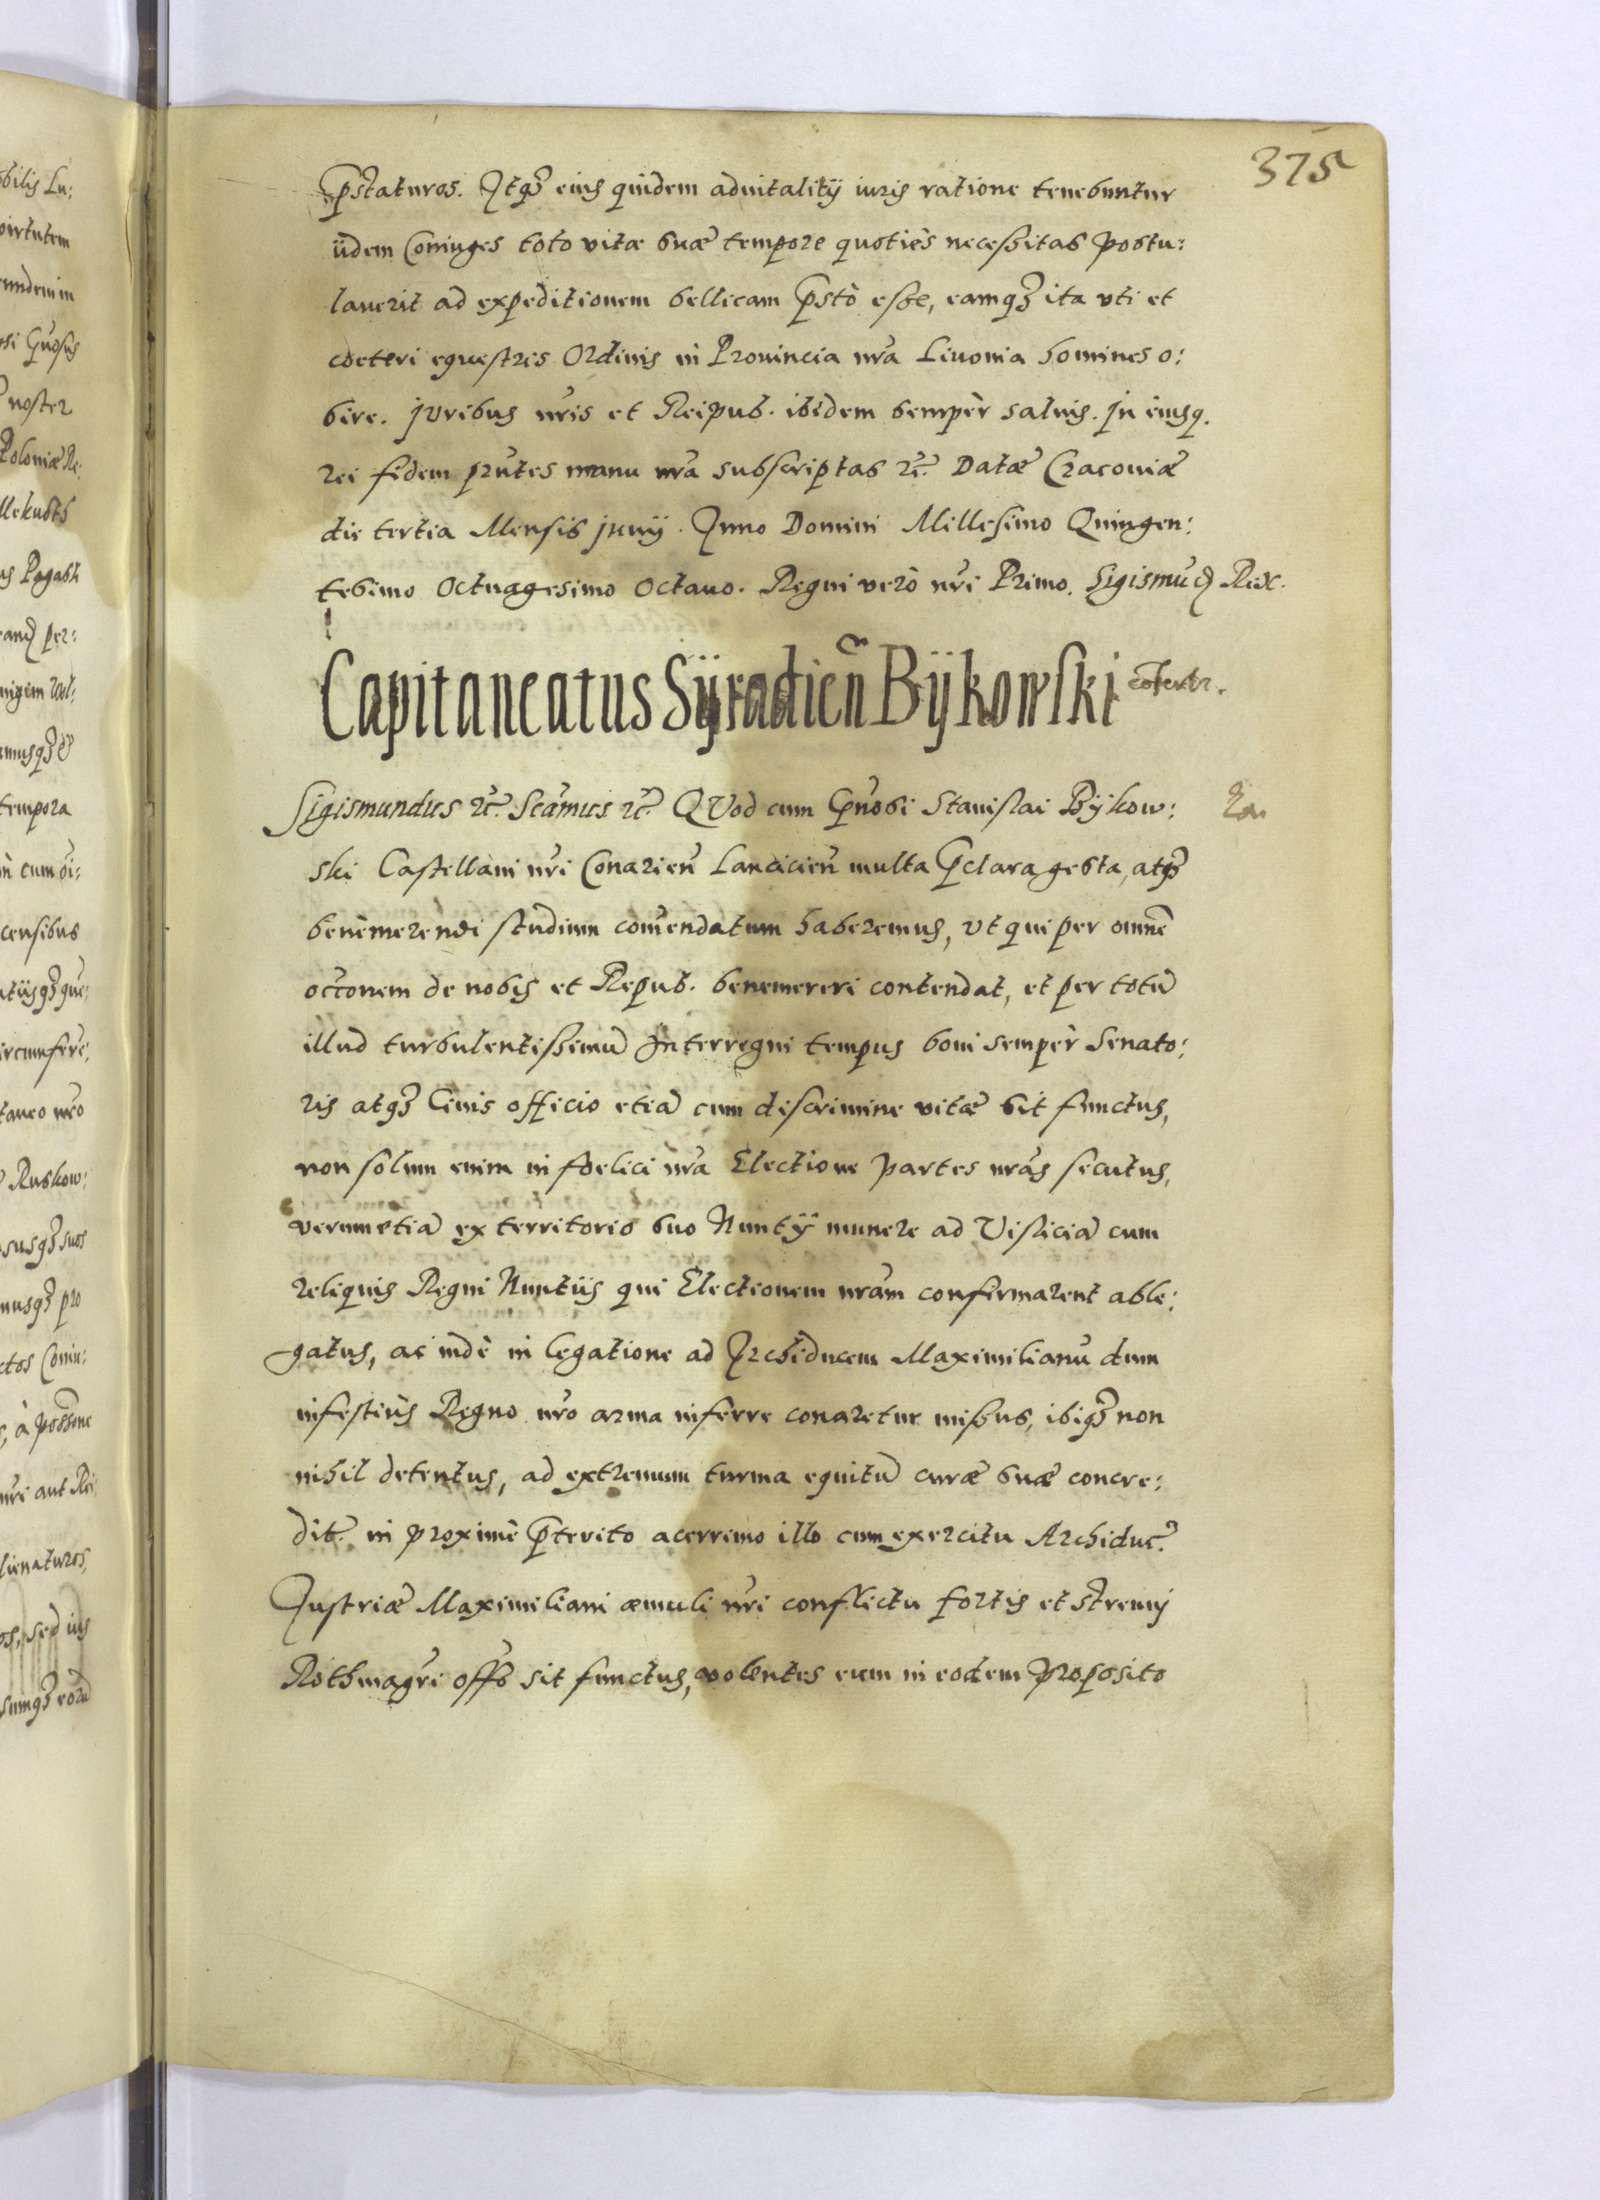 375
p̃staturos. Atq́ʒ eius quidem aduitalitÿ iuris ratione tenebuntur
ijdem Coniuges toto vitæ suæ tempore quotiès necessitas postu:
lauerit ad expeditionem bellicam p̃stò esse, eamq́ʒ ita vti et
cœteri equestris Ordinis in Prouincia nr̃a Liuonia homines o:
bire. Juribus nr̃is et Reipub. ibidem sempèr saluis. In eiusq.
rei fidem pñtes manu nr̃a subscriptas ꝛc̃. Datæ Cracouiæ
die tertia Mensis Junÿ. Anno Domini Millesimo Quingen:
tesimo Octuagesimo Octauo. Regni verò nr̃i Primo. Sigismũd Rex.
Capitaneatus Sÿradicñ Bÿkowski cõfertr.
Sigismundus ꝛc̃. Scãmus ꝛc̃. QVod cum Gñosi Stanislai Bÿkow:
ski Castellani nr̃i Conarieñ Lanciciеñ multa p̃clara gesta, atq́ʒ
benèmerendi studium com̃endatum haberemus, vt qui per omnẽ
occõnem de nobis et Repub. benemereri contendat, et per totũ
illud turbulentissimũ Interregni tempus boni sempèr Senato:
ris atq́ʒ Ciuis officio etiã cum discrimine vitæ sit functus,
non solum enim in fœlici nr̃a Electione partes nr̃as secutus,
verumetiã ex territorio suo Nuntÿ munere ad Visliciã cum
reliquis Regni Nuntijs qui Electionem nr̃am confirmarent able:
gatus, ac indè in legatione ad Archiducem Maximilianũ dum
infestiùs Regno nr̃o arma inferre conaretur missus, ibiq́ʒ non
nihil detentus, ad extremum turma equitũ curæ suæ concre:
dit̃. in proximè p̃terito acerrimo illo cum exercitu Archiduc̃.
Austriæ Maximiliani æmuli nr̃i conflictu fortis et strenuj
Rothmagr̃i offõ sit functus, volentes eum in eodem proposito